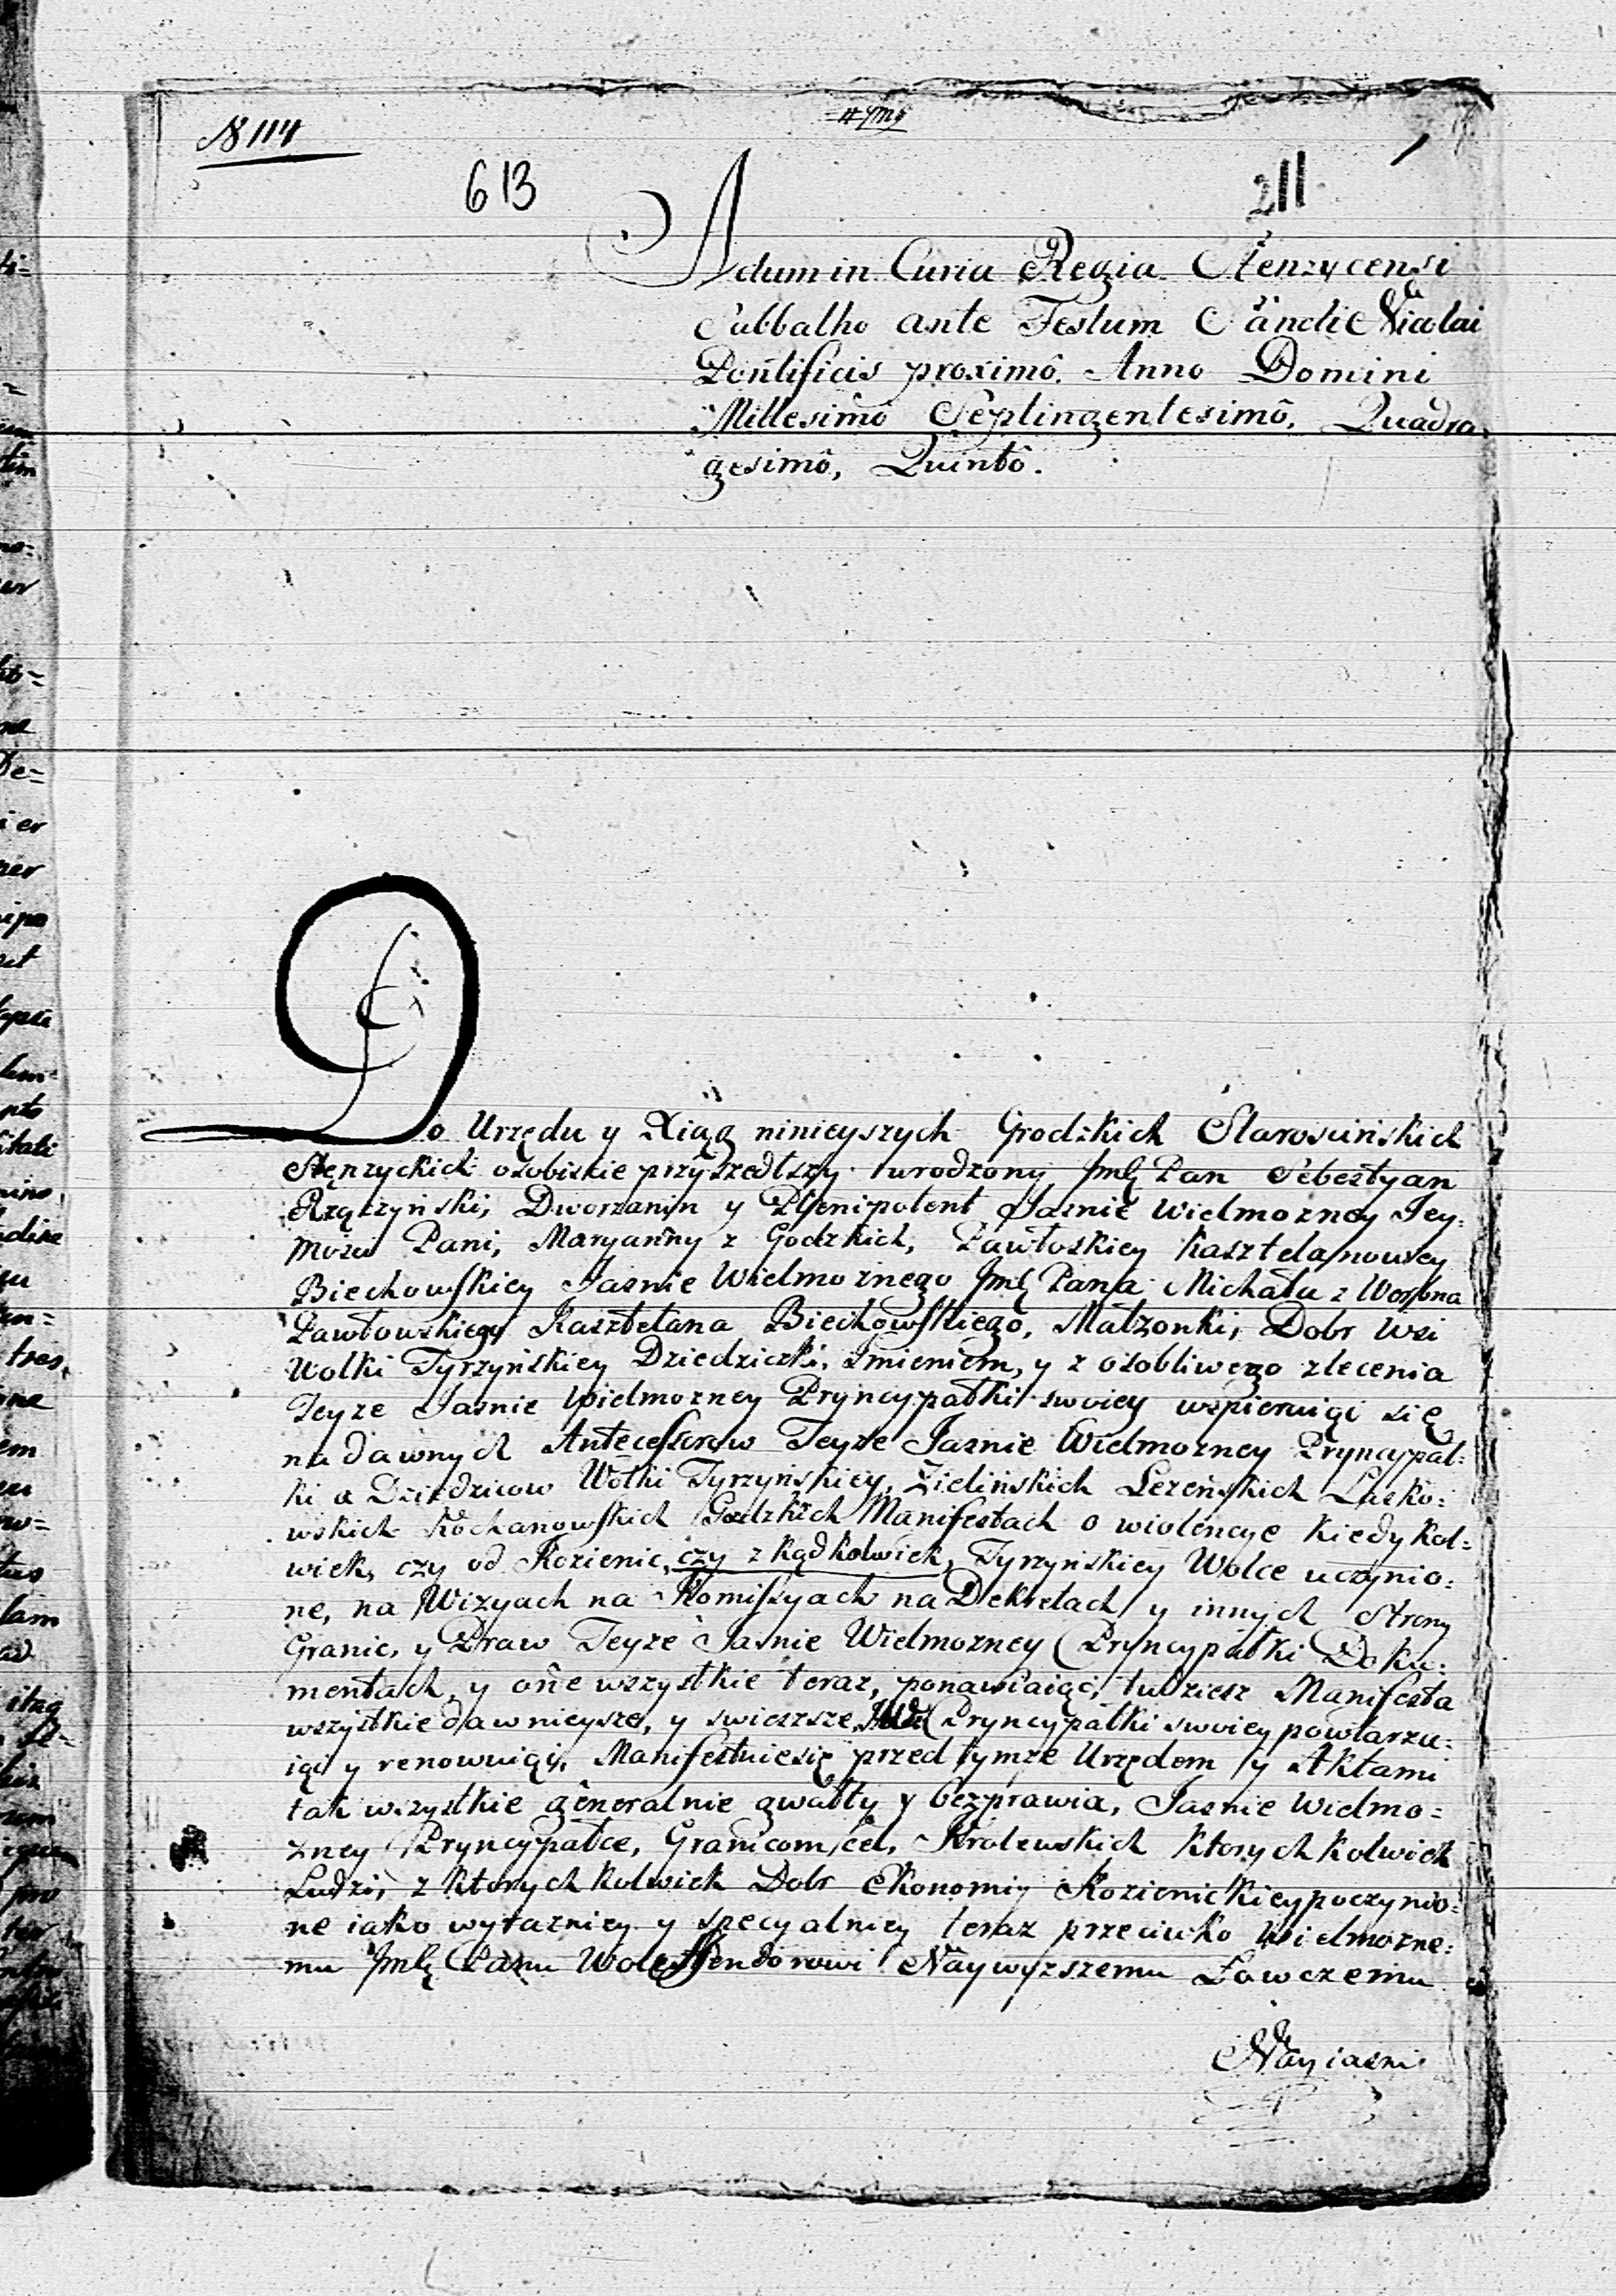 N 114
613
211
Actum in Curia Regia Stenzycensi
Sabbatho ante Festum Sancti Nicolai
Pontificis proximô. Anno Domini
Millesimô Septingentesimô, Quadra
gesimô, Quintô.
Do Urzędu y Xiąg ninieyszych Grodzkich Starościńskich
Stęnzyckich osobiscie przyszedłszy urodzony Jmć Pan Sebestyan
Rzączyński, Dworzanin y Plenipotent Jasnie Wielmozney Jey:
mości Pani, Maryanny z Godzkich, Pawłoskiey Kasztelanowey
Biechowskiey Jasnie Wielmoznego Jmć Pana Michała z Worona
Pawłowskiego Kasztelana Biechowskiego, Małzonki, Dobr Wsi
Wolki Tyrzyńskiey Dziedziczki, Jmieniem, y z osobliwego zlecenia
Teyze Jasnie Wielmozney Pryncypałki swoiey wspieraiąc się
na dawnych Antecessorow Teyze Jasnie Wielmozney Pryncypał:
ki a Dziedzicow Wolki Tyrzyńskiey, Zielińskich Lezeńskich Lasko:
wskich Kochanowskich Godzkich Manifestach o wiolencye kiedykol:
wiek, czy od Kozienic, czy z kądkolwiek, Tyrzyńskiey Wolce uczynio:
ne, na Wizyach na Komissyach na Dekretach y innych strony
Granic, y Praw Teyze Jasnie Wielmozney Pryncypałki Doku:
mentach, y one wszystkie teraz, ponawiaiąc, tudziesz Manifesta
wszystkie dawnieysze, y swieższe, Pryncypałki swoiey powtarza:
iąc y renowuiąc, Manifestuiesię przed tymze Urzędem y Aktami
tak wszystkie generalnie gwałty y bezprawia, Jasnie Wielmo:
zney Pryncypałce, Granicom iey, Krolewskich ktorychkolwiek
Ludzi, z ktorychkolwiek Dobr Ekonomiy Kozienickiey poczynio:
ne iako wyrazniey y specyalniey teraz przeciwko Wielmozne:
mu Jmć Panu Wolffendorowi Naywyzszemu Łowczemu
Nayiasni